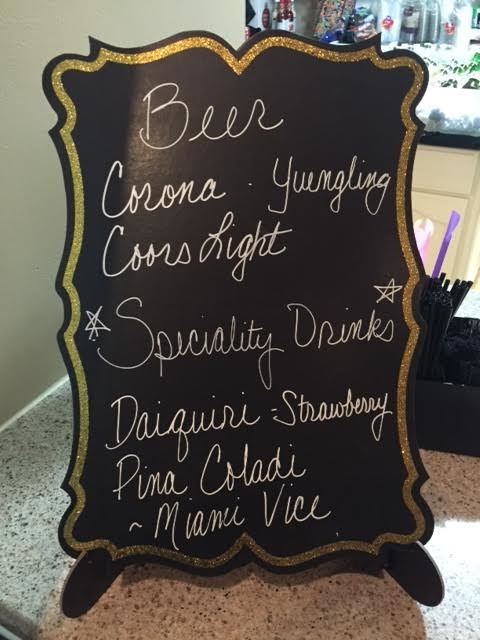 Beer
Corona · Yuengling
Coors Light
☆ Speciality Drinks ☆
Daiquiri - Strawberry
Pina Coladi
~ Miami Vice